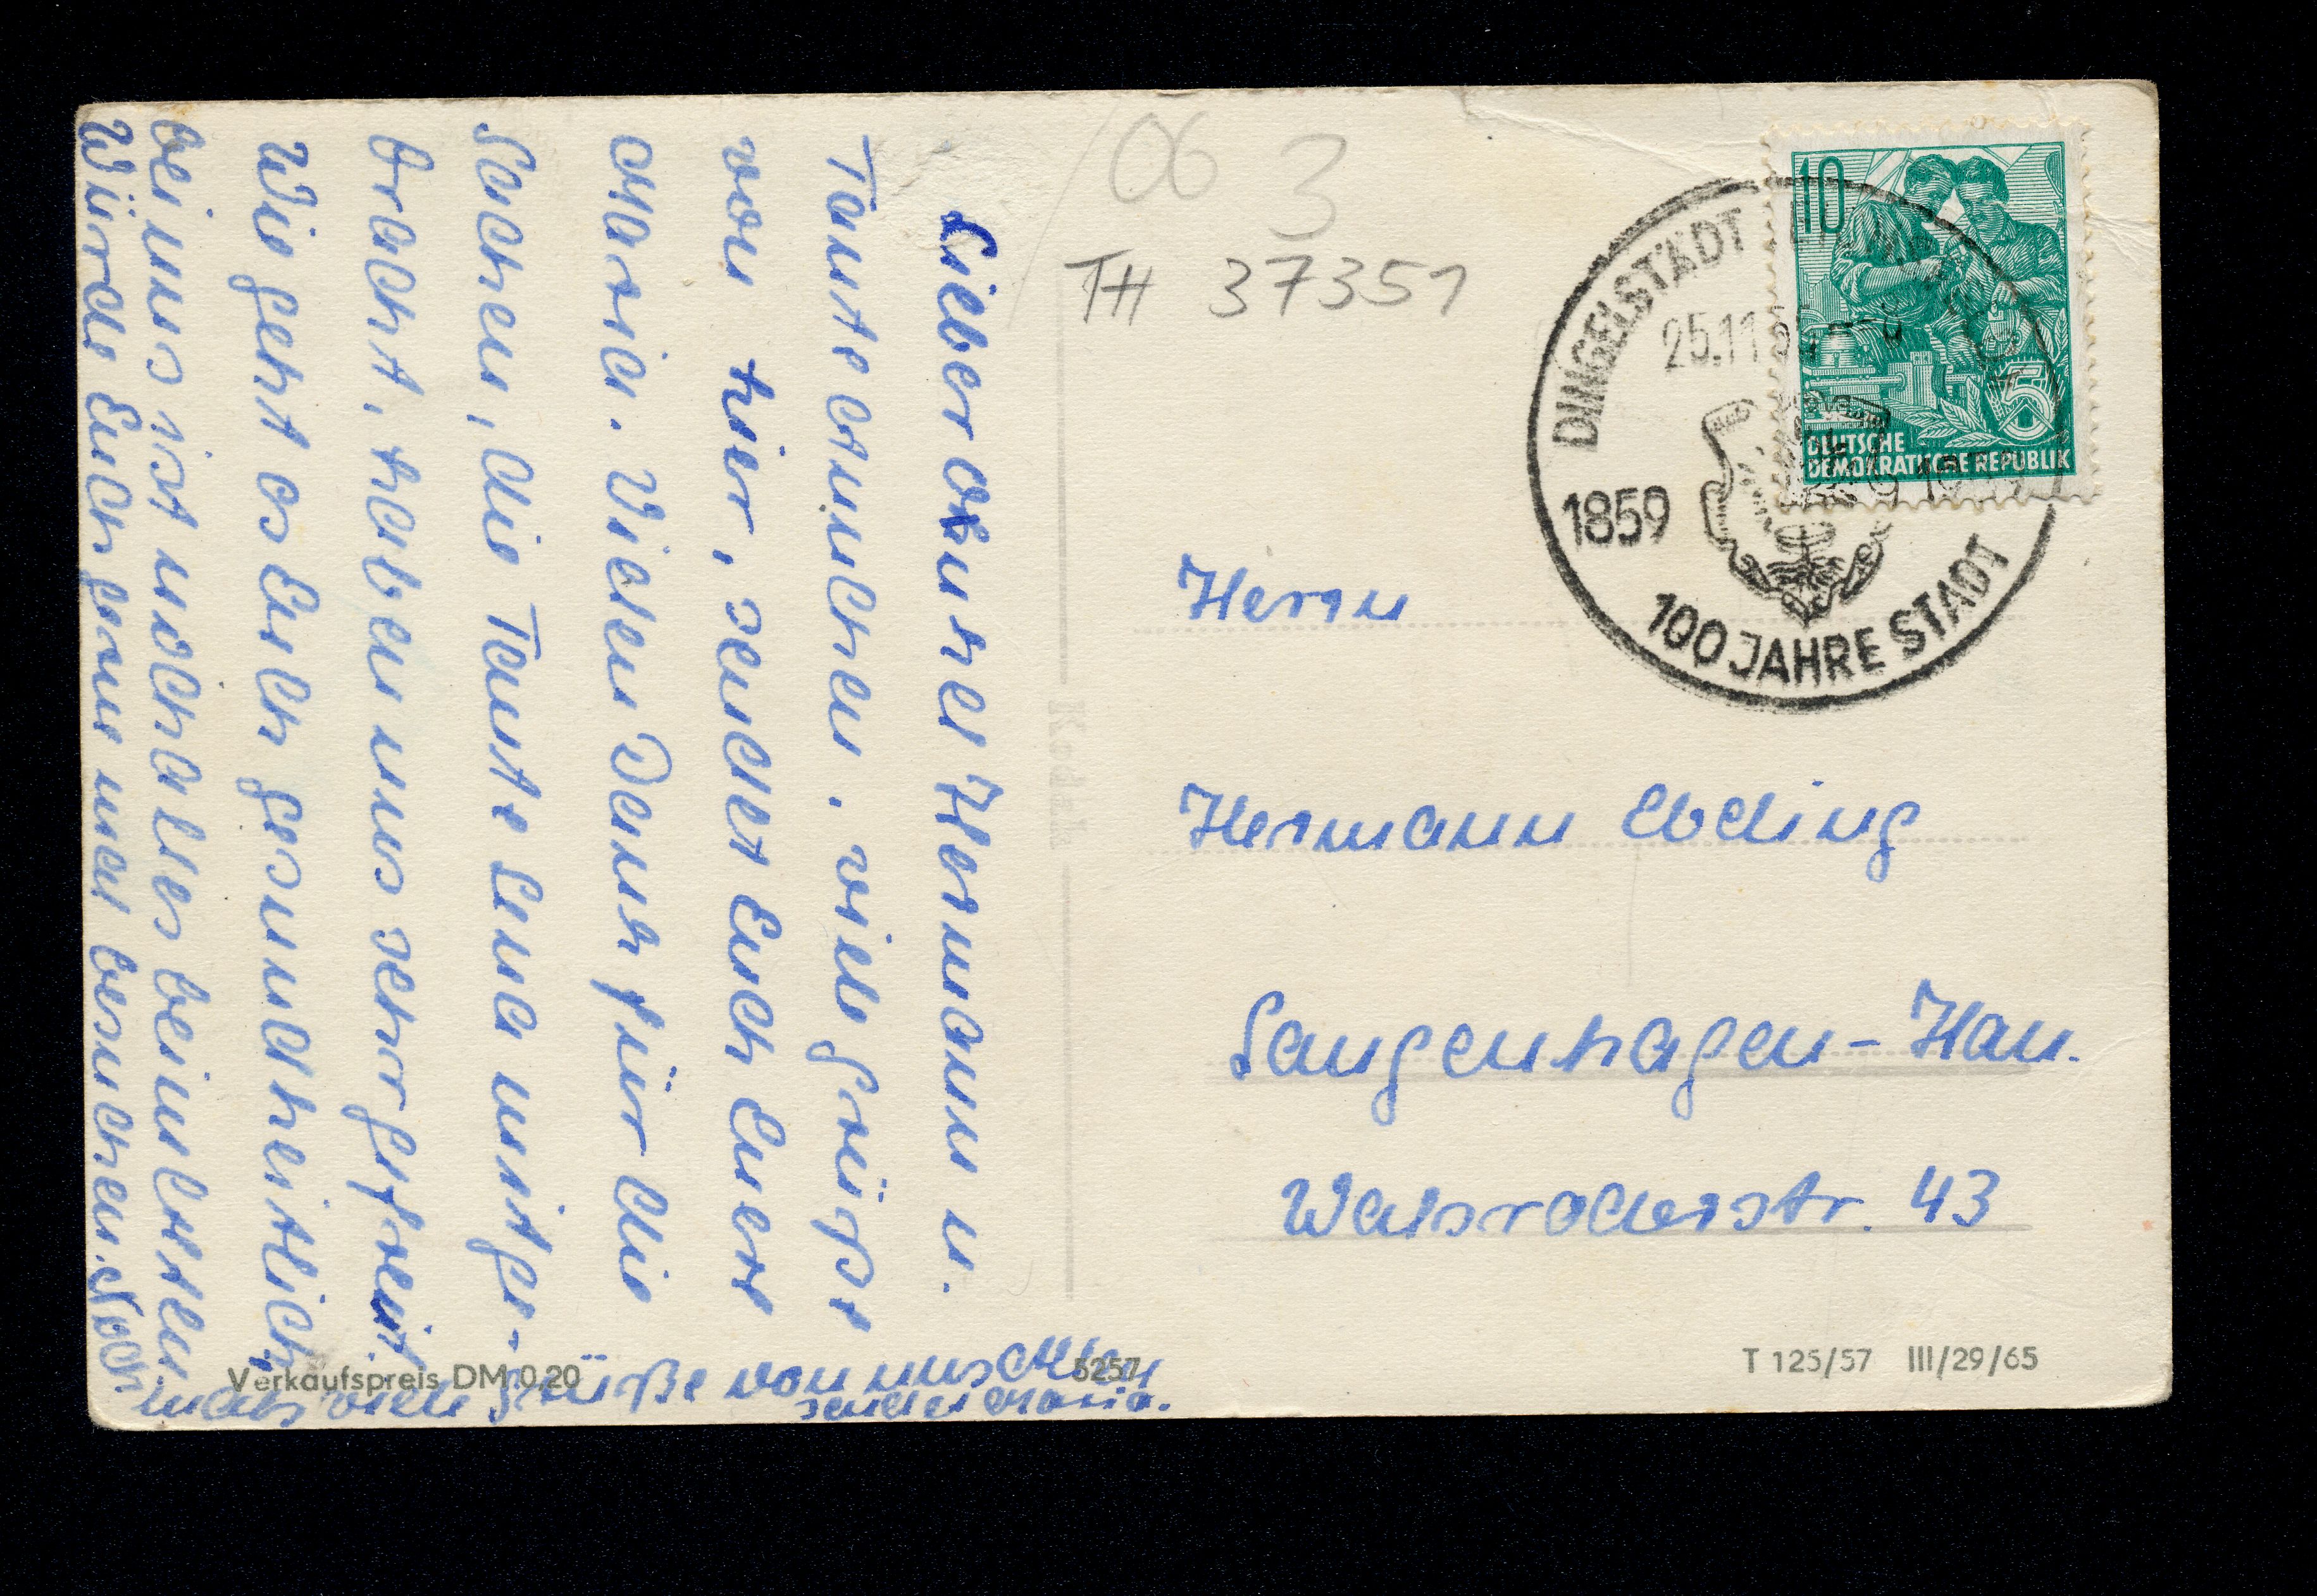 Lieber Onkel Hermann u.
Tante Ännchen. viele Grüße
von hier, sendet Euch Eure
Maria. Vielen Dank für die
Sachen, die Tante Lena mitge-
bracht, haben uns sehr gefreut.
Wie geht es Euch gesundheitlich
bei uns ist noch alles beim alten
Würde Euch gerne mal besuchen. Noch
mals viele Grüße von uns Allen
sendet Maria.
06 3
TH 37351
DINGELSTÄDT
25.11.59
1859
100 JAHRE STADT
10
5
DEUTSCHE
DEMOKRATISCHE REPUBLIK
Herrn
Hermann Ebeling
Langenhagen-Han.
Walsroderstr. 43
Verkaufspreis DM 0,20
5257
T 125/57 III/29/65